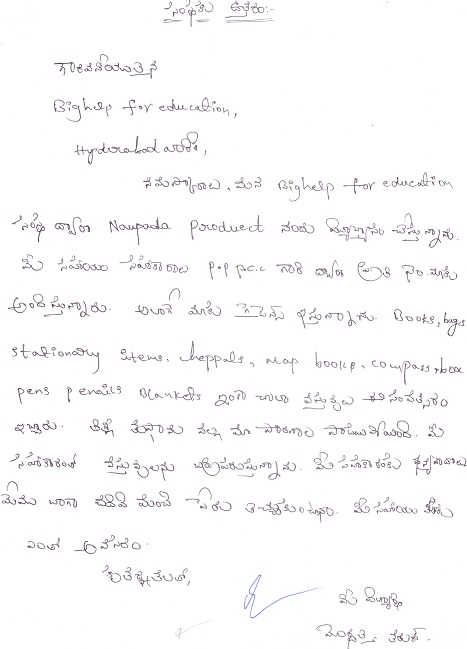 సంస్థకు ఉత్తరం:-
గౌరవనీయులైన
Bighelp for education,
Hyderabad వారికి,
నమస్కారాలు. మేము Bighelp for education
సంస్థ ద్వారా Naupada product నందు విద్యాభ్యాసం చేస్తున్నాము.
మీ సహాయ సహకారాలు P.P.R.C.C గారి ద్వారా ప్రతి సం. మాకు
అందిస్తున్నారు. అలాగే మాకు గైడెన్స్ ఇస్తున్నారు. Books, bags
stationary items, cheppals, map books, compass box
pens pencils Blankets ఇంకా చాలా వస్తువులు ఈ సంవత్సరం
ఇచ్చారు. తిత్లి తుఫాను వల్ల మా పాఠశాల పాడైపోయింది. మీ
సహకారంతో వస్తువులను
మేము బాగా చదివి మంచి పేరు తెచ్చుకుంటాం. మీ సహాయం మాకు
ఎంతో అవసరం.
కృతజ్ఞతలతో,
మీ విద్యార్థి